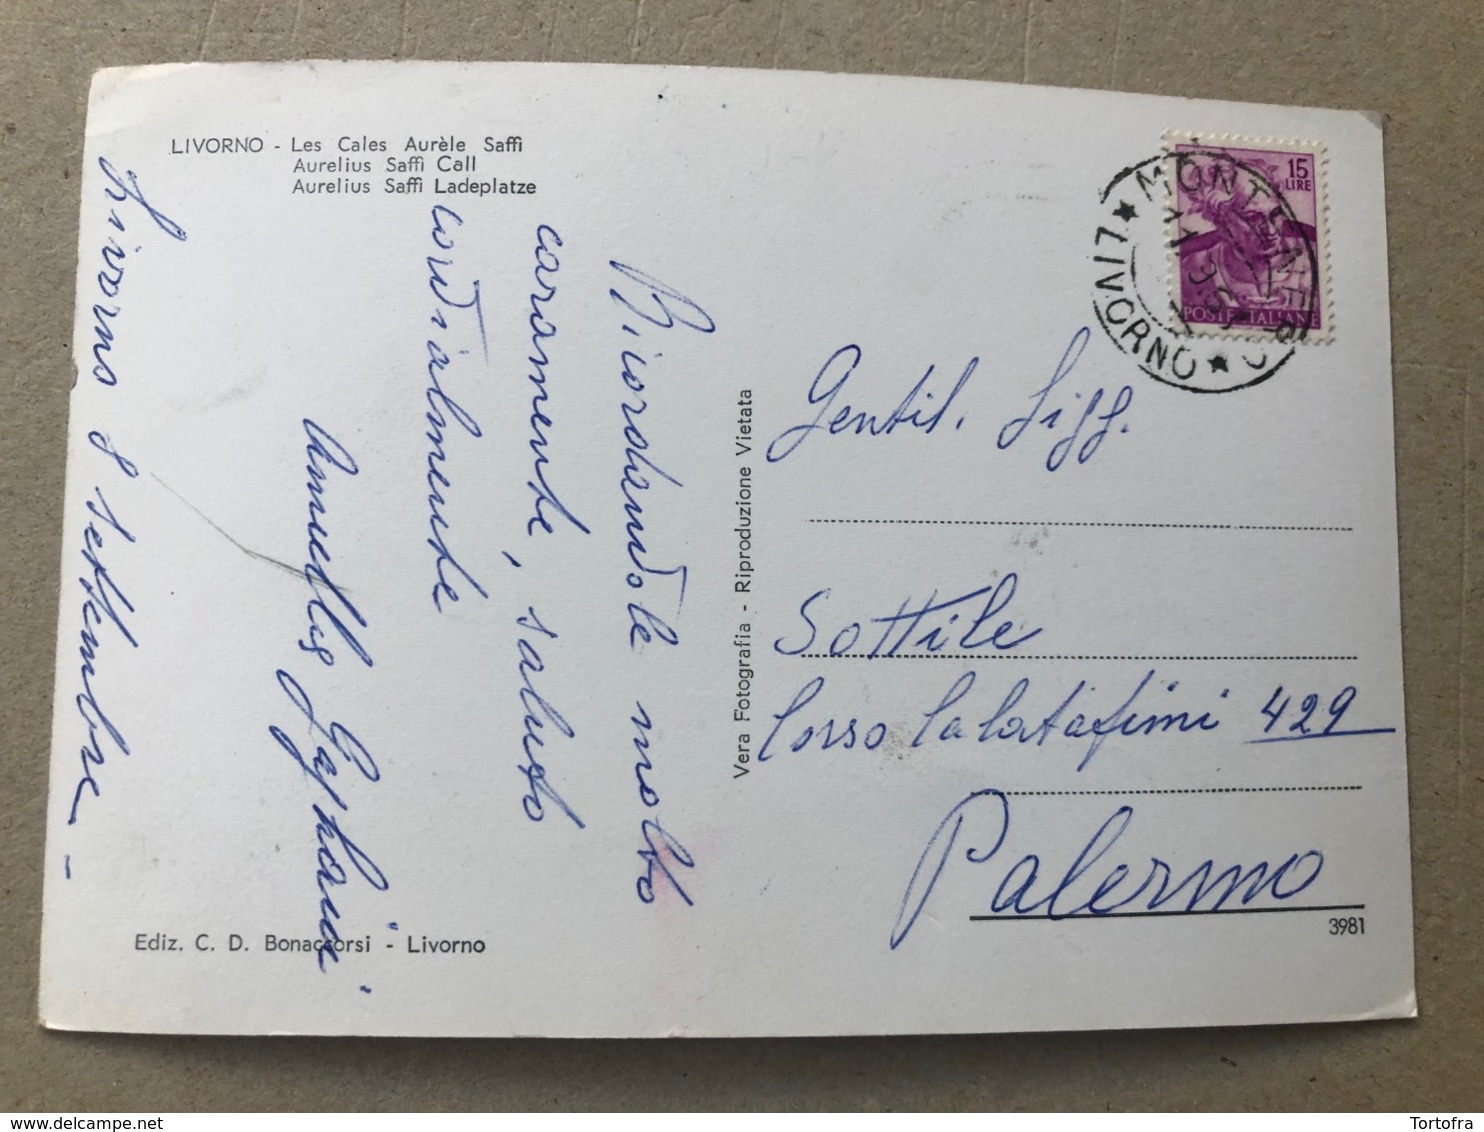 LIVORNO - Les Cales Aurèle Saffi
Aurelius Saffi Call
Aurelius Saffi Ladeplatze
Ricordandole molto
caramente, saluto
cordialmente
Livorno 8 settembre -
Ediz. C. D. Bonaccorsi - Livorno
Vera Fotografia - Riproduzione Vietata
15
LIRE
POSTE ITALIANE
MONTENERO
LIVORNO
Gentil. Sigg.
Sottile
Corso Calatafimi 429
Palermo
3981
Tortofra